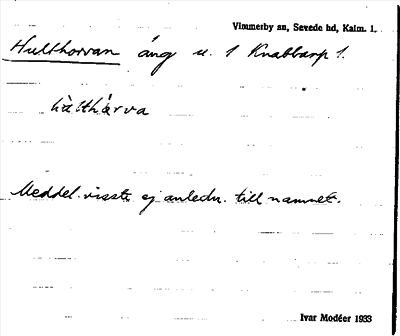 Vimmerby sn, Sevede hd, Kalm. l.
Hulthorvan äng u. 1 Knabbarp 1.
hùlthár va
Meddel. visste ej anledn. till namnet.
Ivar Modéer 1933